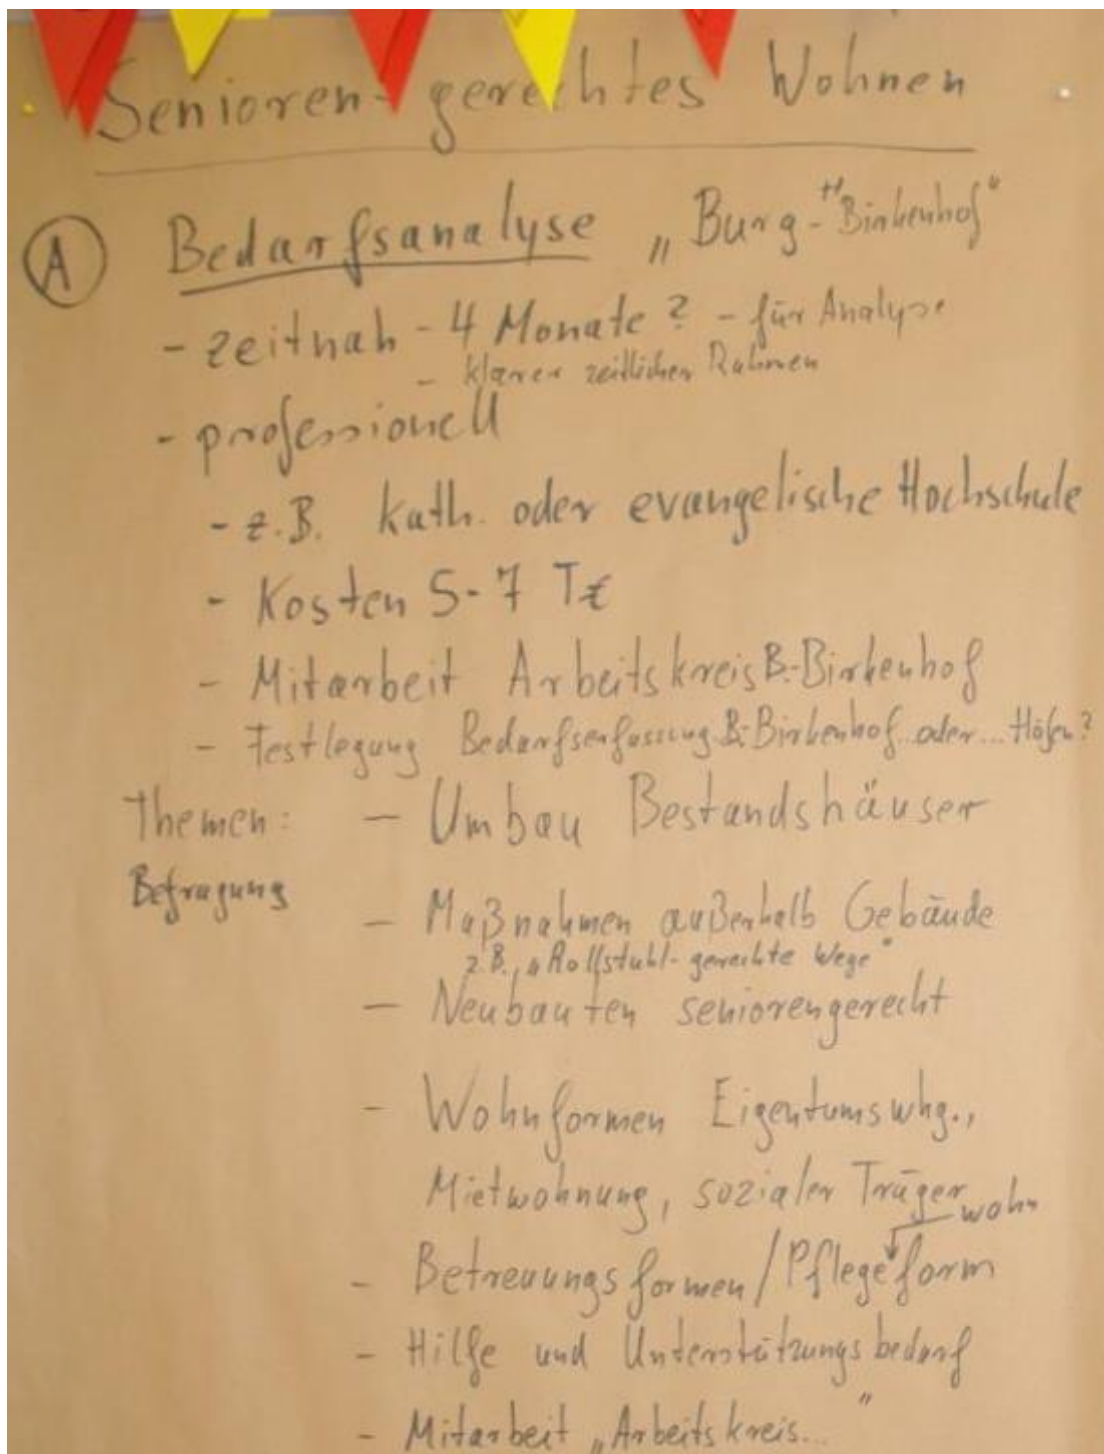 Senioren-gerechtes Wohnen
A Bedarfsanalyse „Burg-Birkenhof"
- zeitnah - 4 Monate? - für Analyse
- klarer zeitlicher Rahmen
- professionell
- z.B. kath. oder evangelische Hochschule
- Kosten 5-7 T€
- Mitarbeit Arbeitskreis B.-Birkenhof
- Festlegung Bedarfserfassung B.-Birkenhof oder... Höfen?
Themen: - Umbau Bestandshäuser
Befragung
- Maßnahmen außerhalb Gebäude
z.B. „Rollstuhl-gerechte Wege"
- Neubauten seniorengerecht
- Wohnformen Eigentumswhg.,
Mietwohnung, sozialer Träger
wohn
- Betreuungsformen/Pflegeform
- Hilfe und Unterstützungsbedarf
- Mitarbeit „Arbeitskreis..."